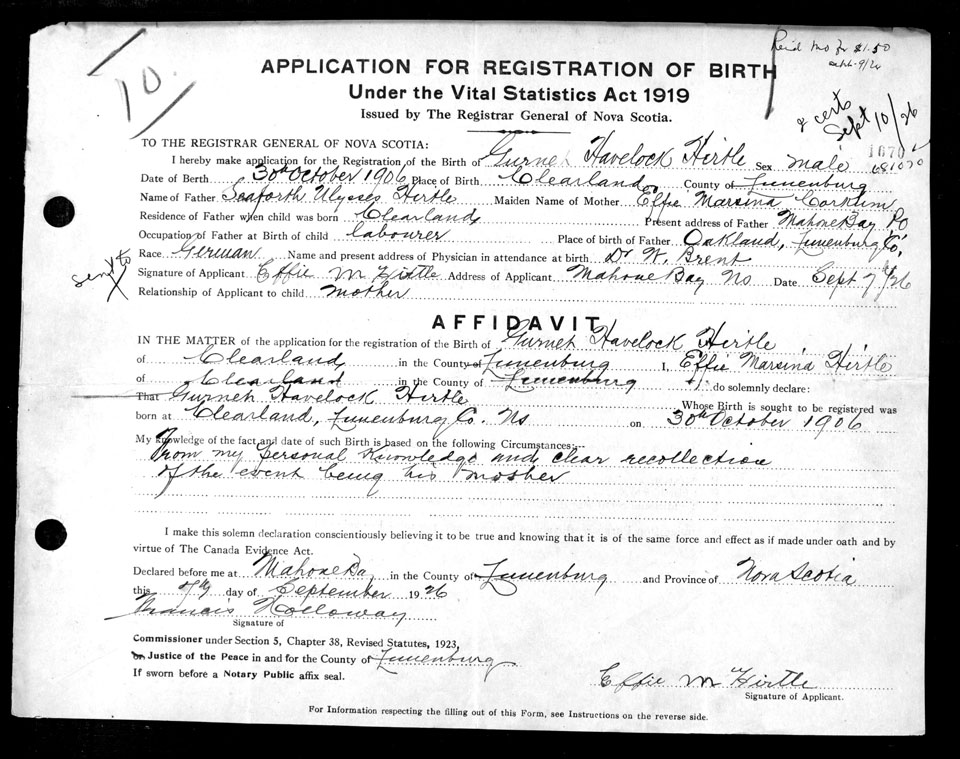 10.
Paid Mo Fr $1.50
Sept. 9/26
APPLICATION FOR REGISTRATION OF BIRTH
Under the Vital Statistics Act 1919
Issued by The Registrar General of Nova Scotia.
2 certs
Sept 10/26
TO THE REGISTRAR GENERAL OF NOVA SCOTIA:
I hereby make application for the Registration of the Birth of Gurneh Havelock Hirtle Sex male
Date of Berth 30th October 1906 Place of Birth Clearland County of Lunenburg
Name of Father Seaforth Ulysses Hirtle Maiden Name of Mother Effie Marsina Corkum
Residence of Father when child was born Clearland Present address of Father Mahone Bay PO
Occupation of Father at Birth of child labourer Place of birth of Father Oakland, Lunenburg Co,
Race German Name and present address of Physician in attendance at birth Dr W. Brent
sent to
Signature of Applicant Effie M Hirtle Address of Applicant Mahone Bay Ns Date Sept 7th/26
Relationship of Applicant to child mother
AFFIDAVIT
IN THE MATTER of the application for the registration of the Birth of Gurneh Havelock Hirtle
of Clearland in the County of Lunenburg I, Effie Marsina Hirtle
of Clearland in the County of Lunenburg do solemnly declare:
That Gurneh Havelock Hirtle Whose Birth is sought to be registered was
born at Clearland, Lunenburg Co. Ns on 30th October 1906
My knowledge of the fact and date of such Birth is based on the following Circumstances:--
From my personal knowledge and clear recollection
of the event being his mother
I make this solemn declaration conscientiously believing it to be true and knowing that it is of the same force and effect as if made under oath and by
virtue of The Canada Evidence Act.
Declared before me at Mahone Ba in the County of Lunenburg and Province of Nova Scotia
this day of September 1926
Francis Holloway
Signature of
Commissioner under Section 5, Chapter 38, Revised Statutes, 1923,
or Justice of the Peace in and for the County of Lunenburg
If sworn before a Notary Public affix seal.
Effie M Hirtle
Signature of Applicant.
For Information respecting the filling out of this Form, see Instructions on the reverse side.